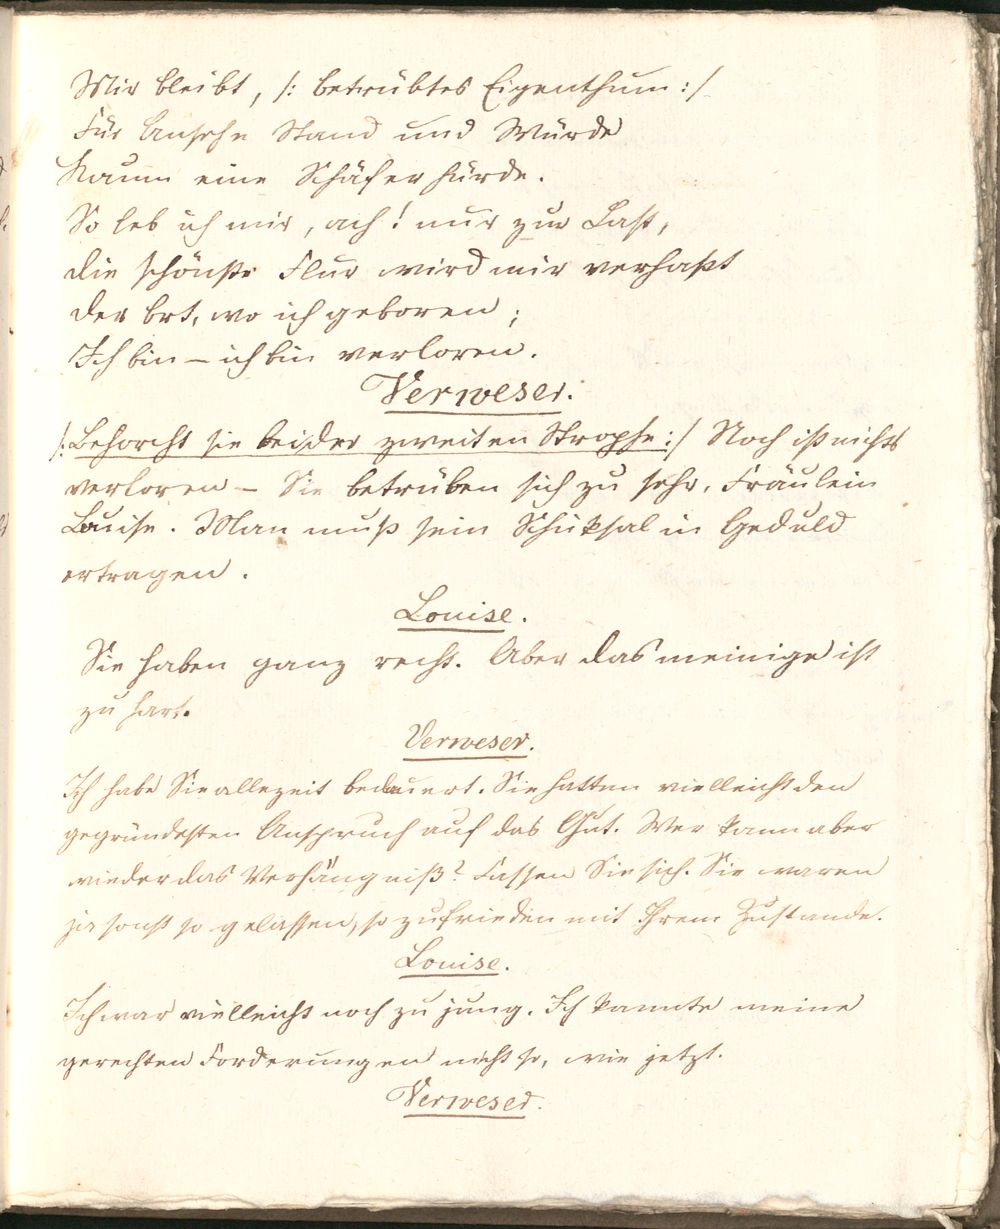 Mir bleibt, /: betrübtes Eigenthum :/
Für Ansehn Stand und Würde
Kaum eine Schäferhürde.
So leb ich mir, ach! nur zur Last,
die schönste Flur wird mir verhaßt
der Ort, wo ich geboren;
Ich bin – ich bin verloren.
Verweser.
/: Behorcht sie bei der zweiten Strophe :/ Noch ist nichts
verloren – Sie betrüben sich zu sehr, Fräulein
Louise. Man muß sein Schiksal in Geduld
ertragen.
Louise.
Sie haben ganz recht. Aber das meinige ist
zu hart.
Verweser.
Ich habe Sie allezeit bedauert. Sie hatten vielleicht den
gegründesten Anspruch auf das Gut. Wer kann aber
wieder das Verhängniß? Fassen Sie sich. Sie waren
ja sonst so gelassen, so zufrieden mit Ihrem Zustande.
Louise.
Ich war vielleicht noch zu jung. Ich kannte meine
gerechten Forderungen nicht so, wie jetzt.
Verweser.